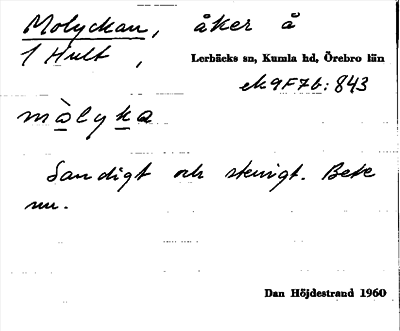 Molyckan, åker å
1 Hult,
Lerbäcks sn, Kumla hd, Örebro län
ek 9F7b:843
mòlyka
Sandigt och stenigt. Bete
nu.
Dan Höjdestrand 1960